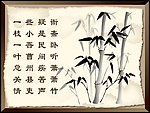 衙斋卧听萧萧竹
疑是民间疾苦声
些小吾曹州县吏
一枝一叶总关情